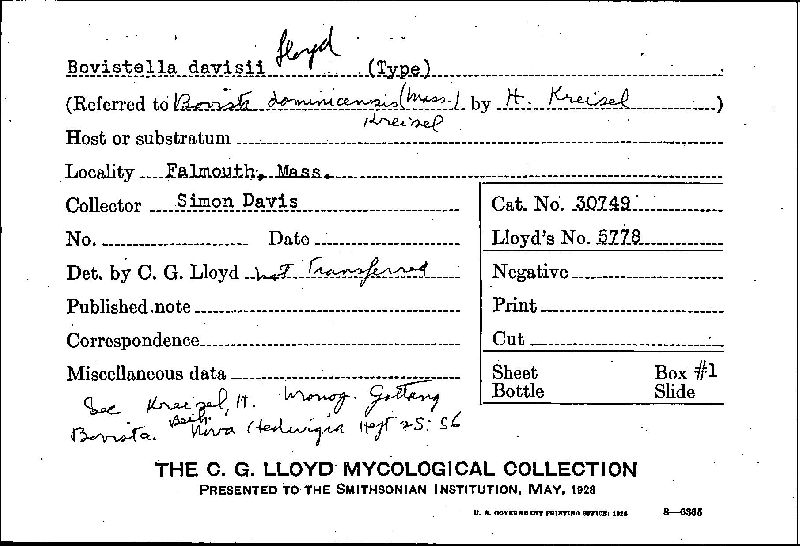 Lloyd
Bovistella davisii (Type)
(Referred to Bovista dominicensis (Mass.) by H. Kreisel)
Kreisel
Host or substratum
Locality Falmouth, Mass.
Collector Simon Davis
No. Date
Det. by C. G. Lloyd not Transferred
Published note
Correspondence
Miscellaneous data
See Kreisel, H. Monog. Gattung
Bovista. Beih. Nova Hedwigia Heft 25: 56
Cat. No. 30749
Lloyd's No. 5778
Negative
Print
Cut
Sheet Box #1
Bottle Slide
THE C. G. LLOYD MYCOLOGICAL COLLECTION
PRESENTED TO THE SMITHSONIAN INSTITUTION, MAY, 1928
U. S. GOVERNMENT PRINTING OFFICE: 1928 8—6365